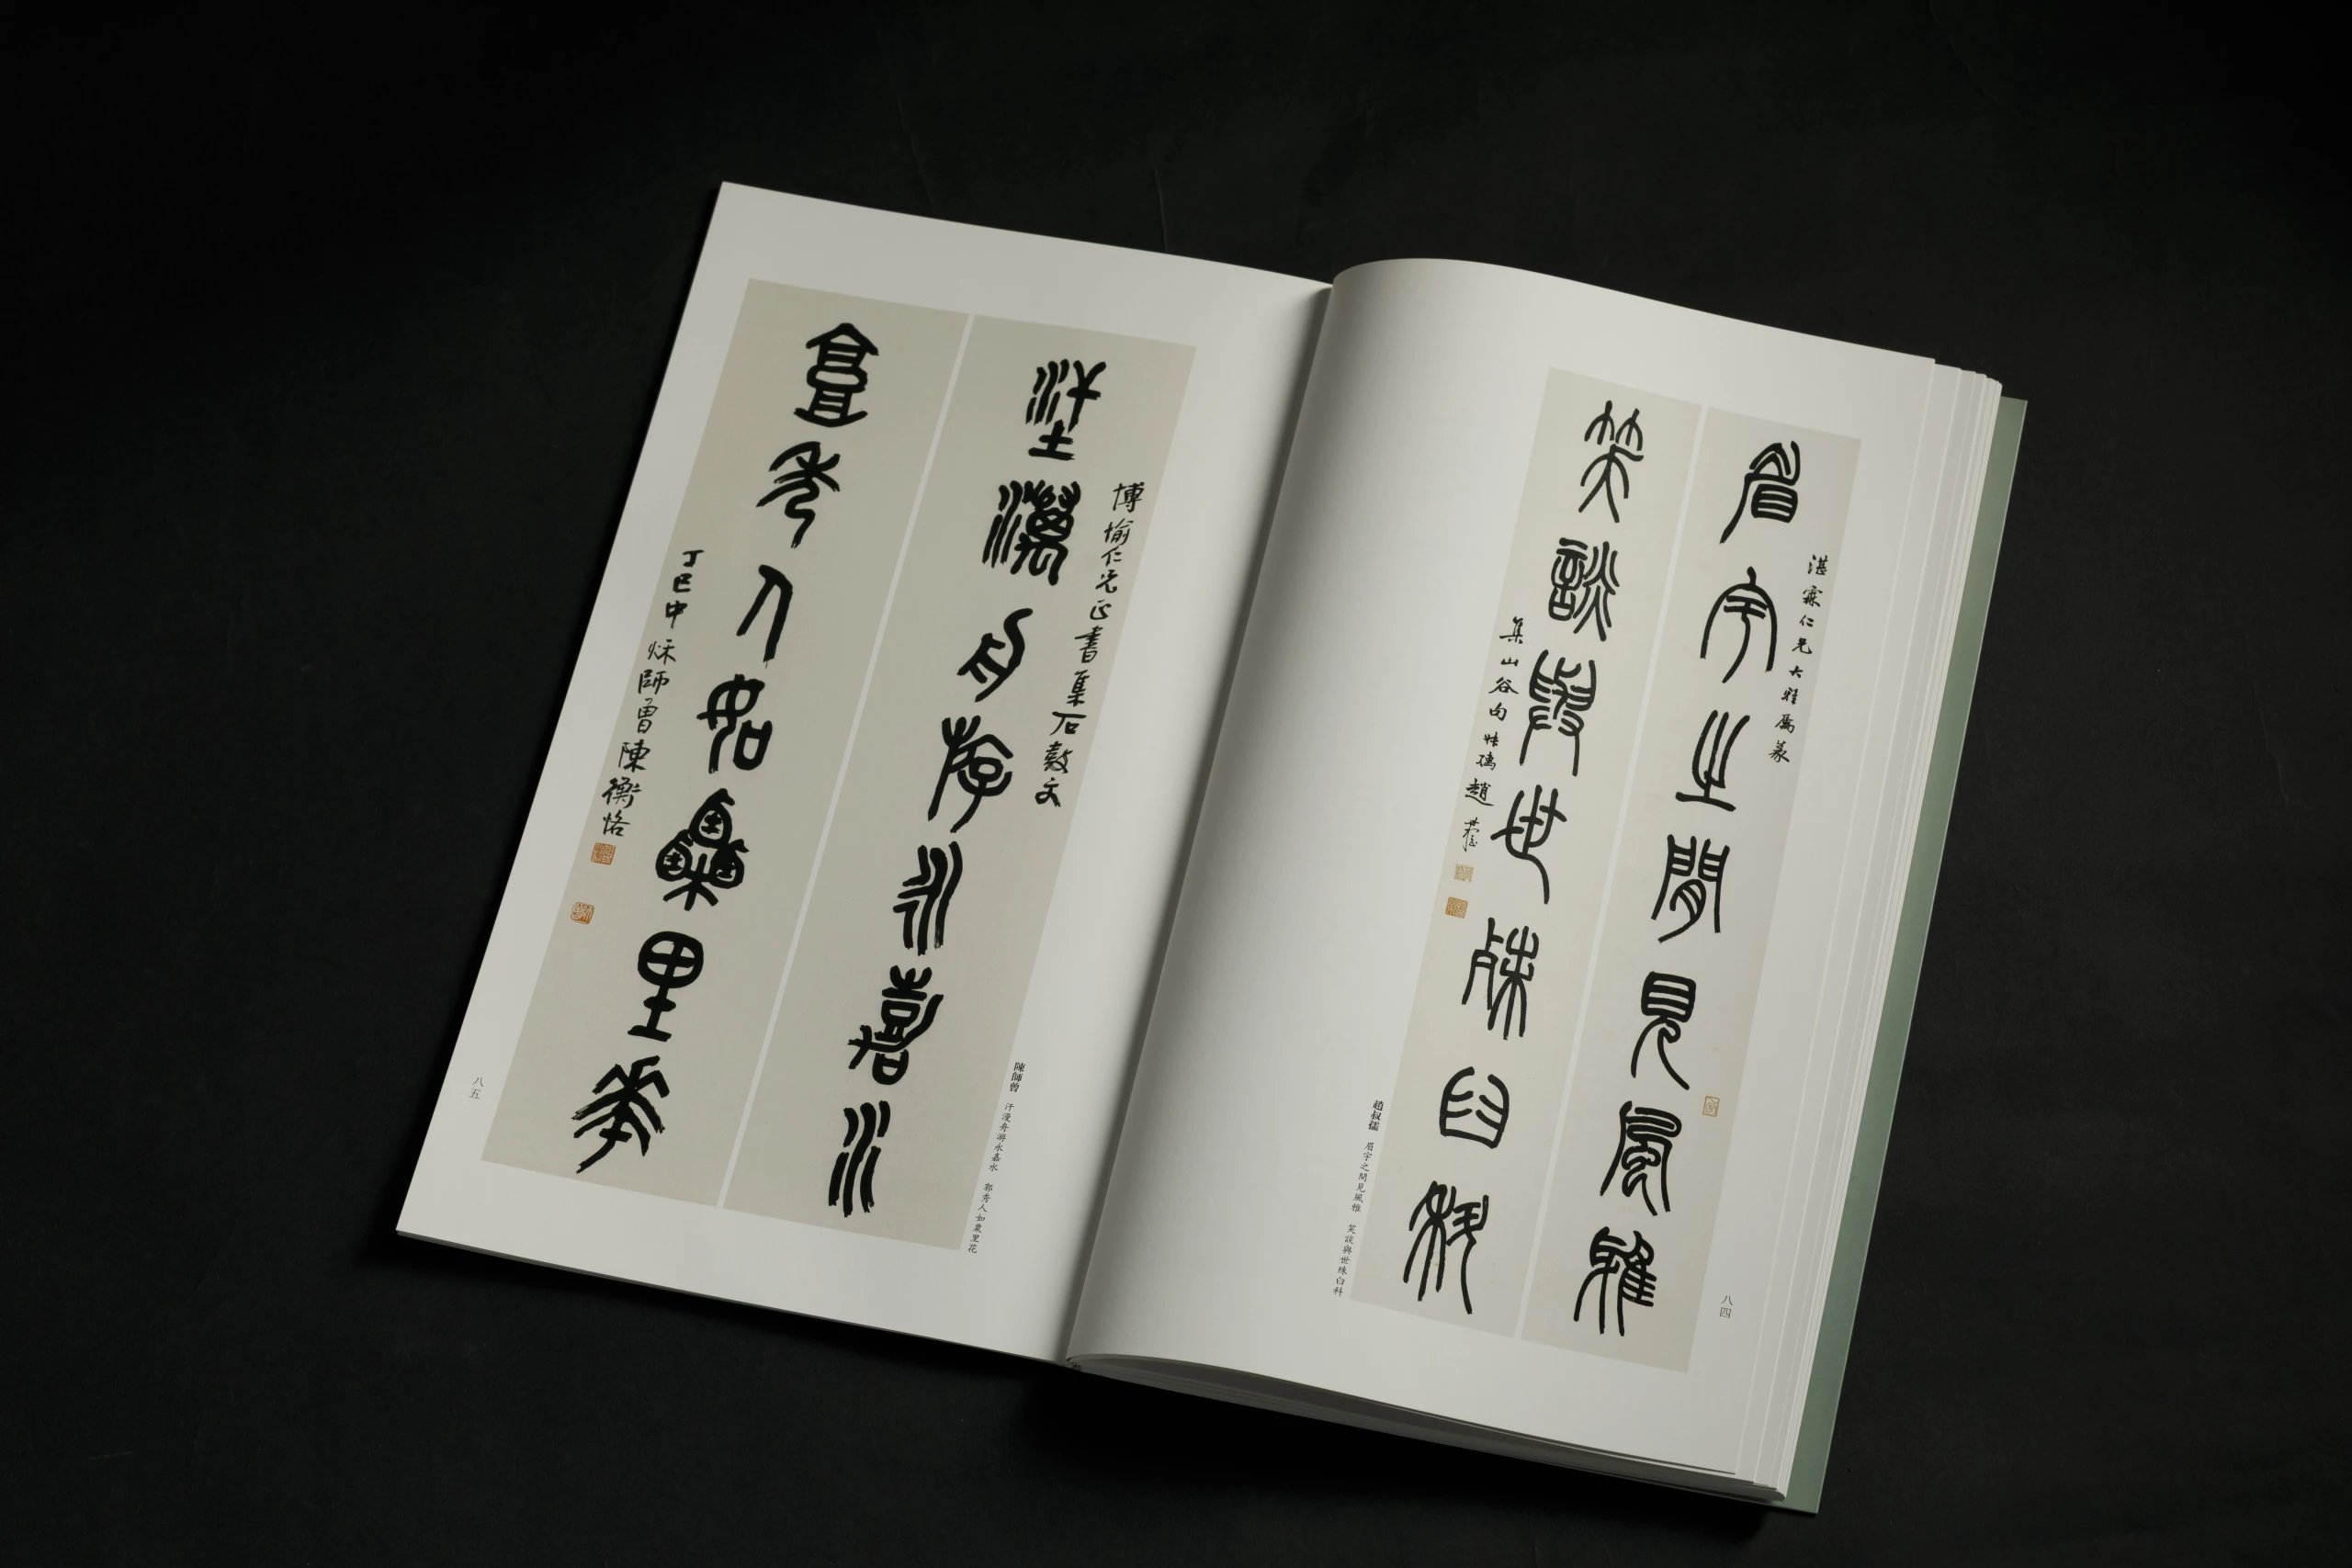 湛霖仁兄大雅屬篆
眉宇之間見風雅
笑談與世殊臼科
集山谷句 叔孺趙
八四
趙叔孺 眉宇之間見風雅 笑談與世殊白科
博愉仁兄正書集石鼓文
汗漫舟游永嘉水
郭秀人如粟里花
丁巳中秌師曾陳衡恪
陳師曾 汗漫舟游永嘉水 郭秀人如粟里花
八五